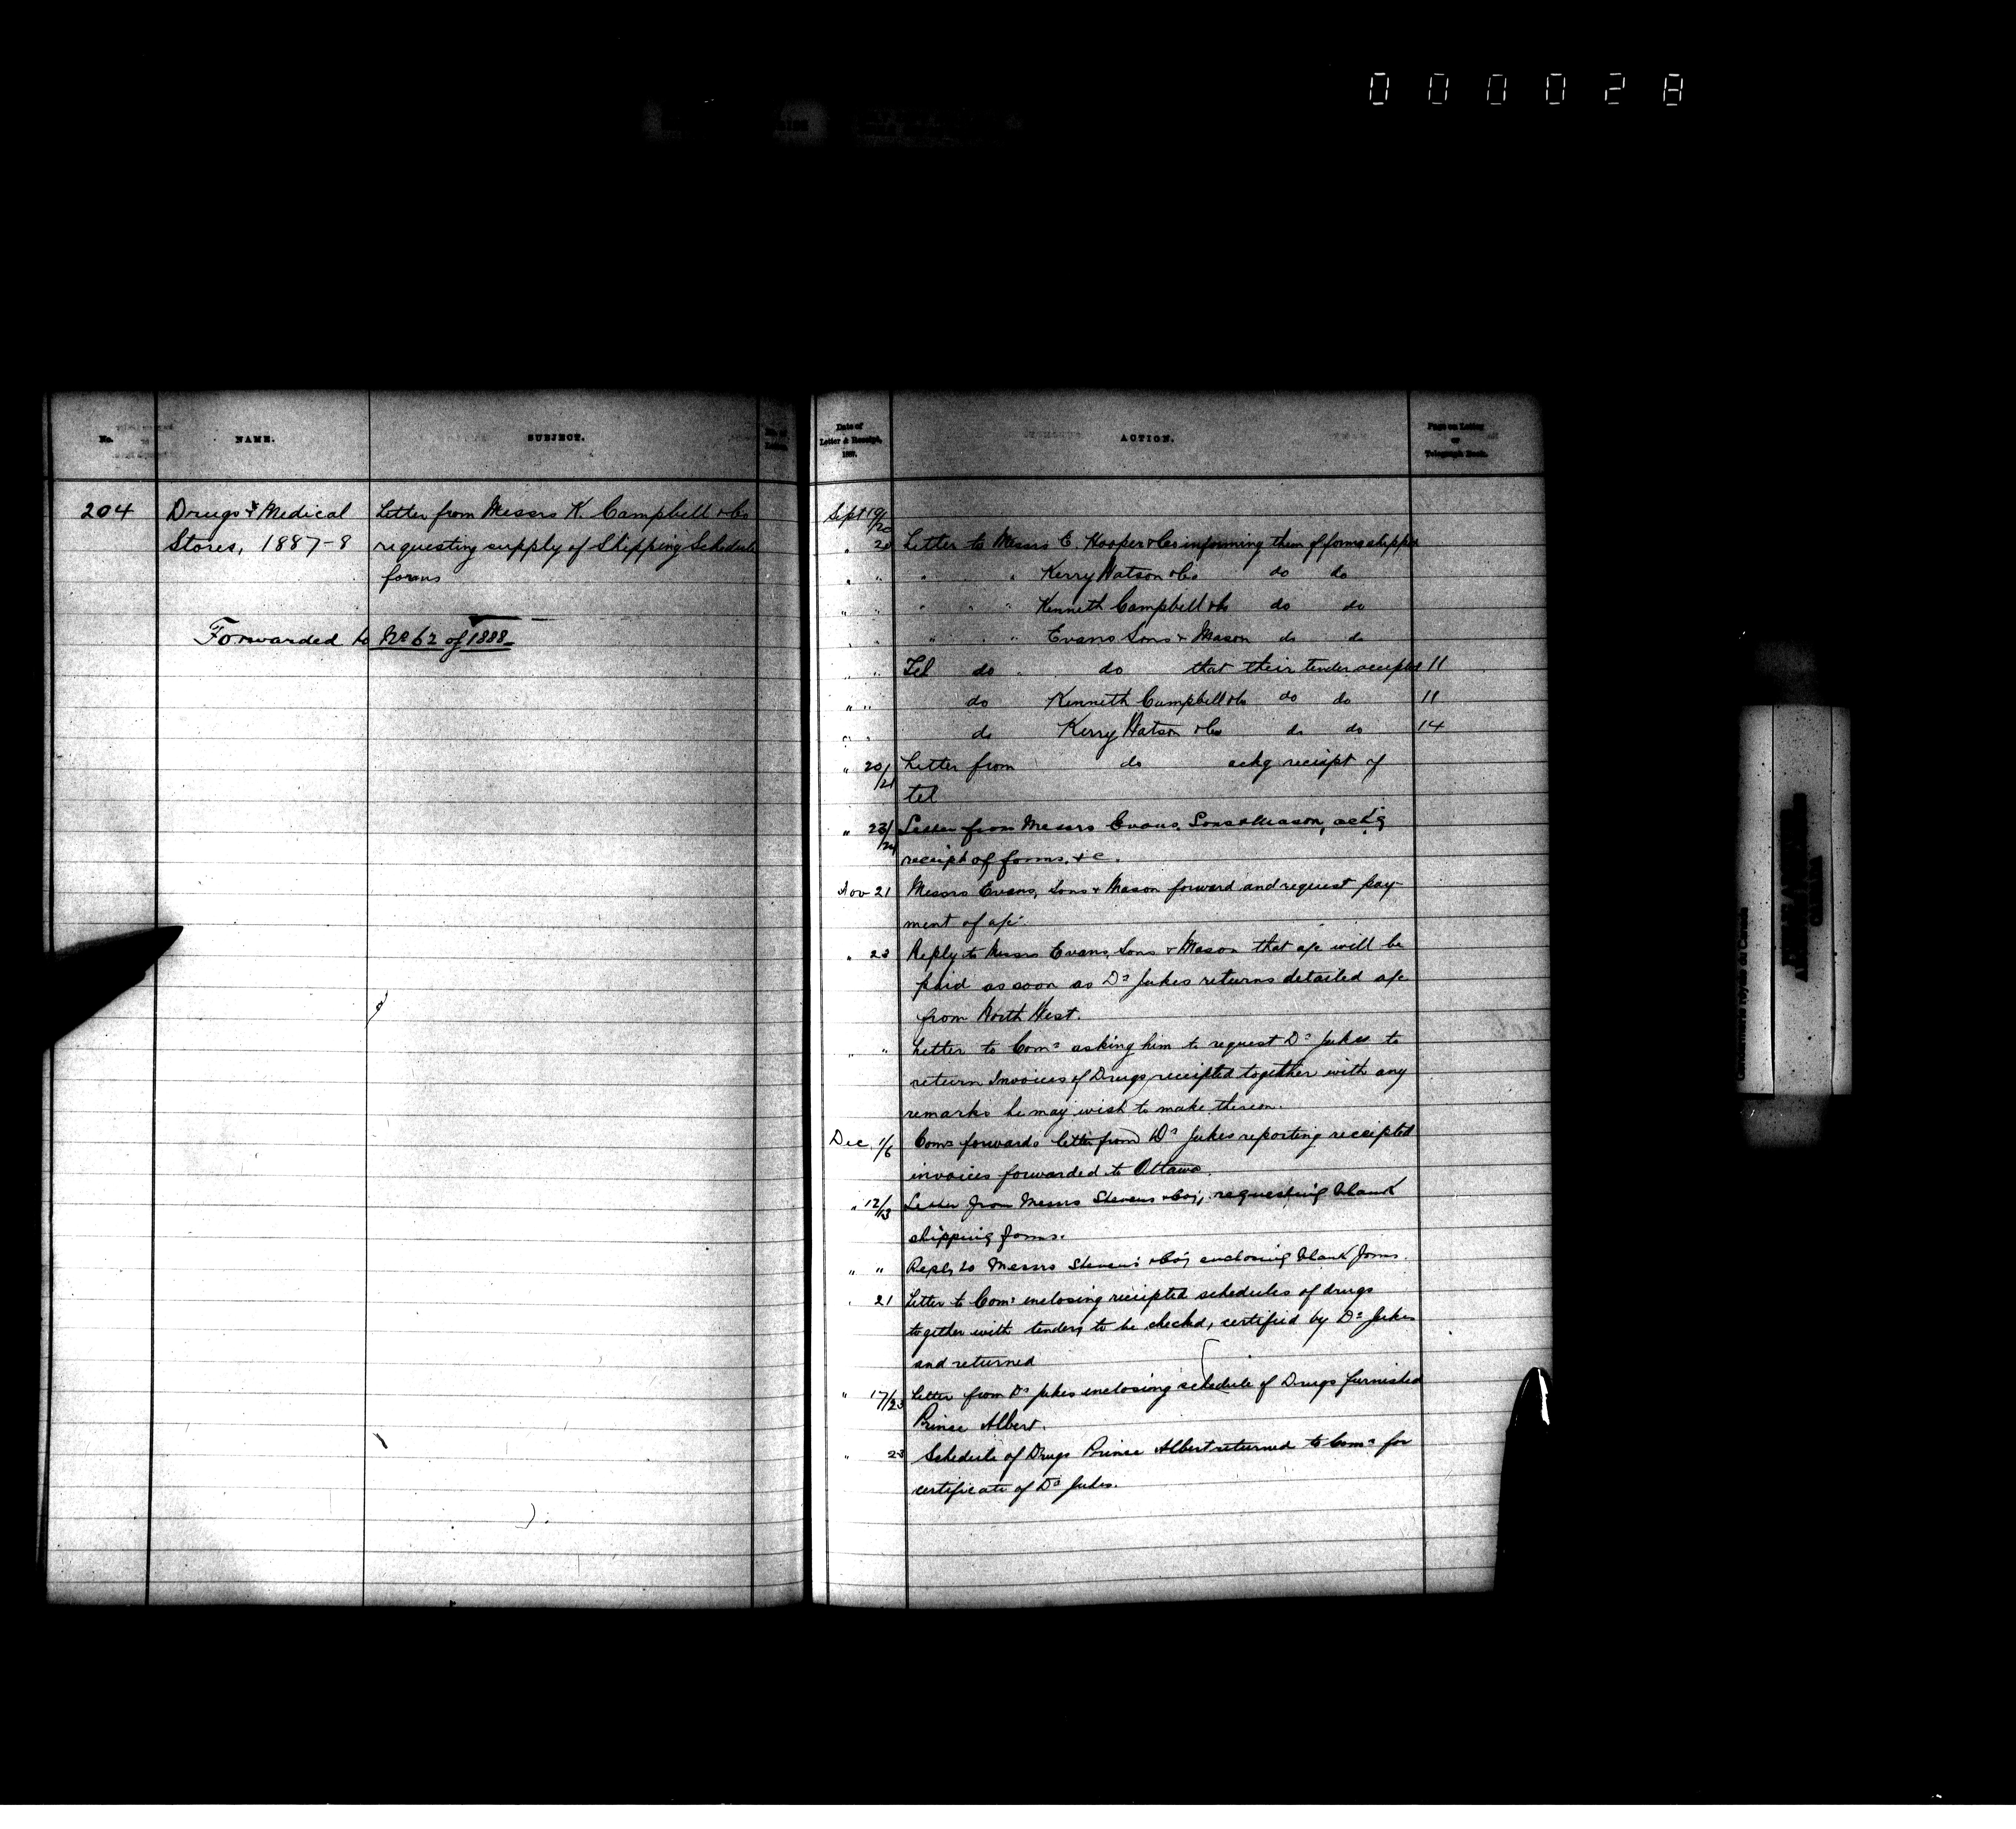 000028
No.
NAME.
SUBJECT.
204
Drugs & Medical
Stores, 1887-8
Letter from Messrs K. Campbell & Co
requesting supply of Shipping Schedule
forms
Forwarded to No 62 of 1888
Date of
Letter & Receipt,
1887.
ACTION.
Page on Letter
or
Telegraph Book.
Sept 19/20
" 20 Letter to Messrs E. Hooper & Co informing them of forms shipped
" " " " " Kerry Watson & Co do do
" " " " " Kenneth Campbell & Co do do
" " " " " Evans Sons & Mason do do
" " Tel do " do that their tender accepted 11
" " do Kenneth Campbell & Co do do 11
" " do Kerry Watson & Co do do 14
" 20/21 Letter from do ackg receipt of
tel
" 23/24 Letter from Messrs Evans, Sons & Mason, ack'g
receipt of forms, &c.
Nov 21 Messrs Evans, Sons & Mason forward and request pay-
ment of a/c.
" 23 Reply to Messrs Evans, Sons & Mason that a/c will be
paid as soon as Dr Jukes returns detailed a/c
from North West.
" " Letter to Comr asking him to request Dr Jukes to
return Invoices of Drugs receipted together with any
remarks he may wish to make thereon.
Dec. 1/6 Comr forwards letter from Dr Jukes reporting receipted
invoices forwarded to Ottawa.
" 12/13 Letter from Messrs Stevens & Co; requesting blank
shipping forms.
" " Reply to Messrs Stevens & Co; enclosing blank forms.
" 21 Letter to Comr enclosing receipted schedules of drugs
together with tenders to be checked, certified by Dr Jukes
and returned
" 17/23 Letter from Dr Jukes enclosing schedule of Drugs furnished
Prince Albert.
" 23 Schedule of Drugs Prince Albert returned to Comr for
certificate of Dr Jukes.